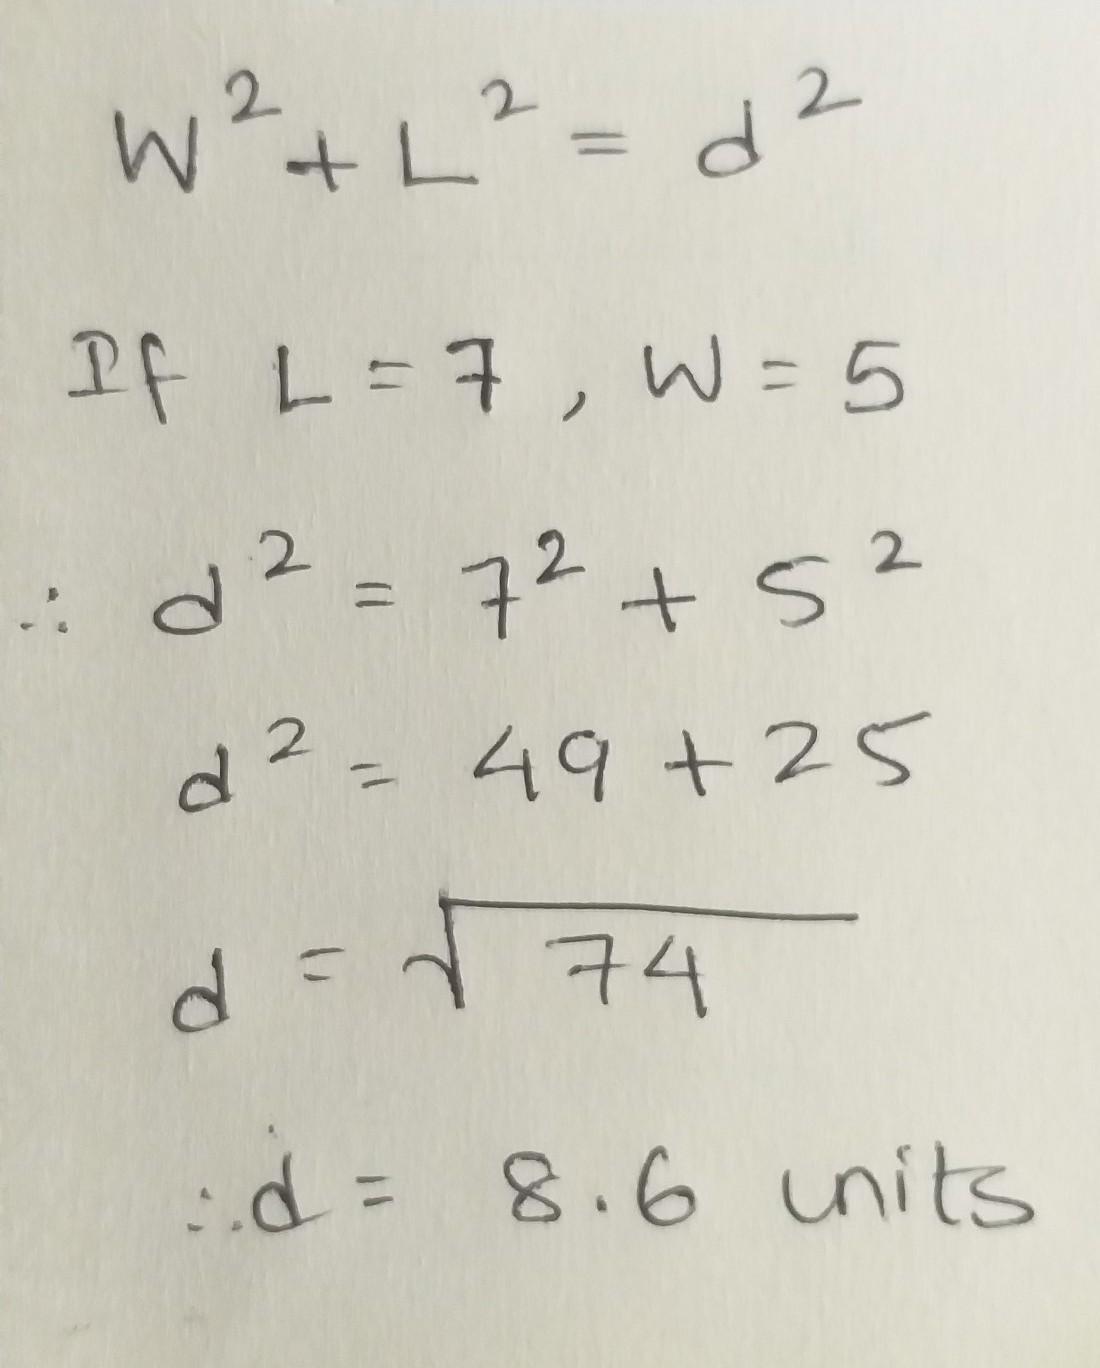 W² + L² = d²
If L = 7, W = 5
∴ d² = 7² + 5²
d² = 49 + 25
d = √74
∴ d = 8.6 units